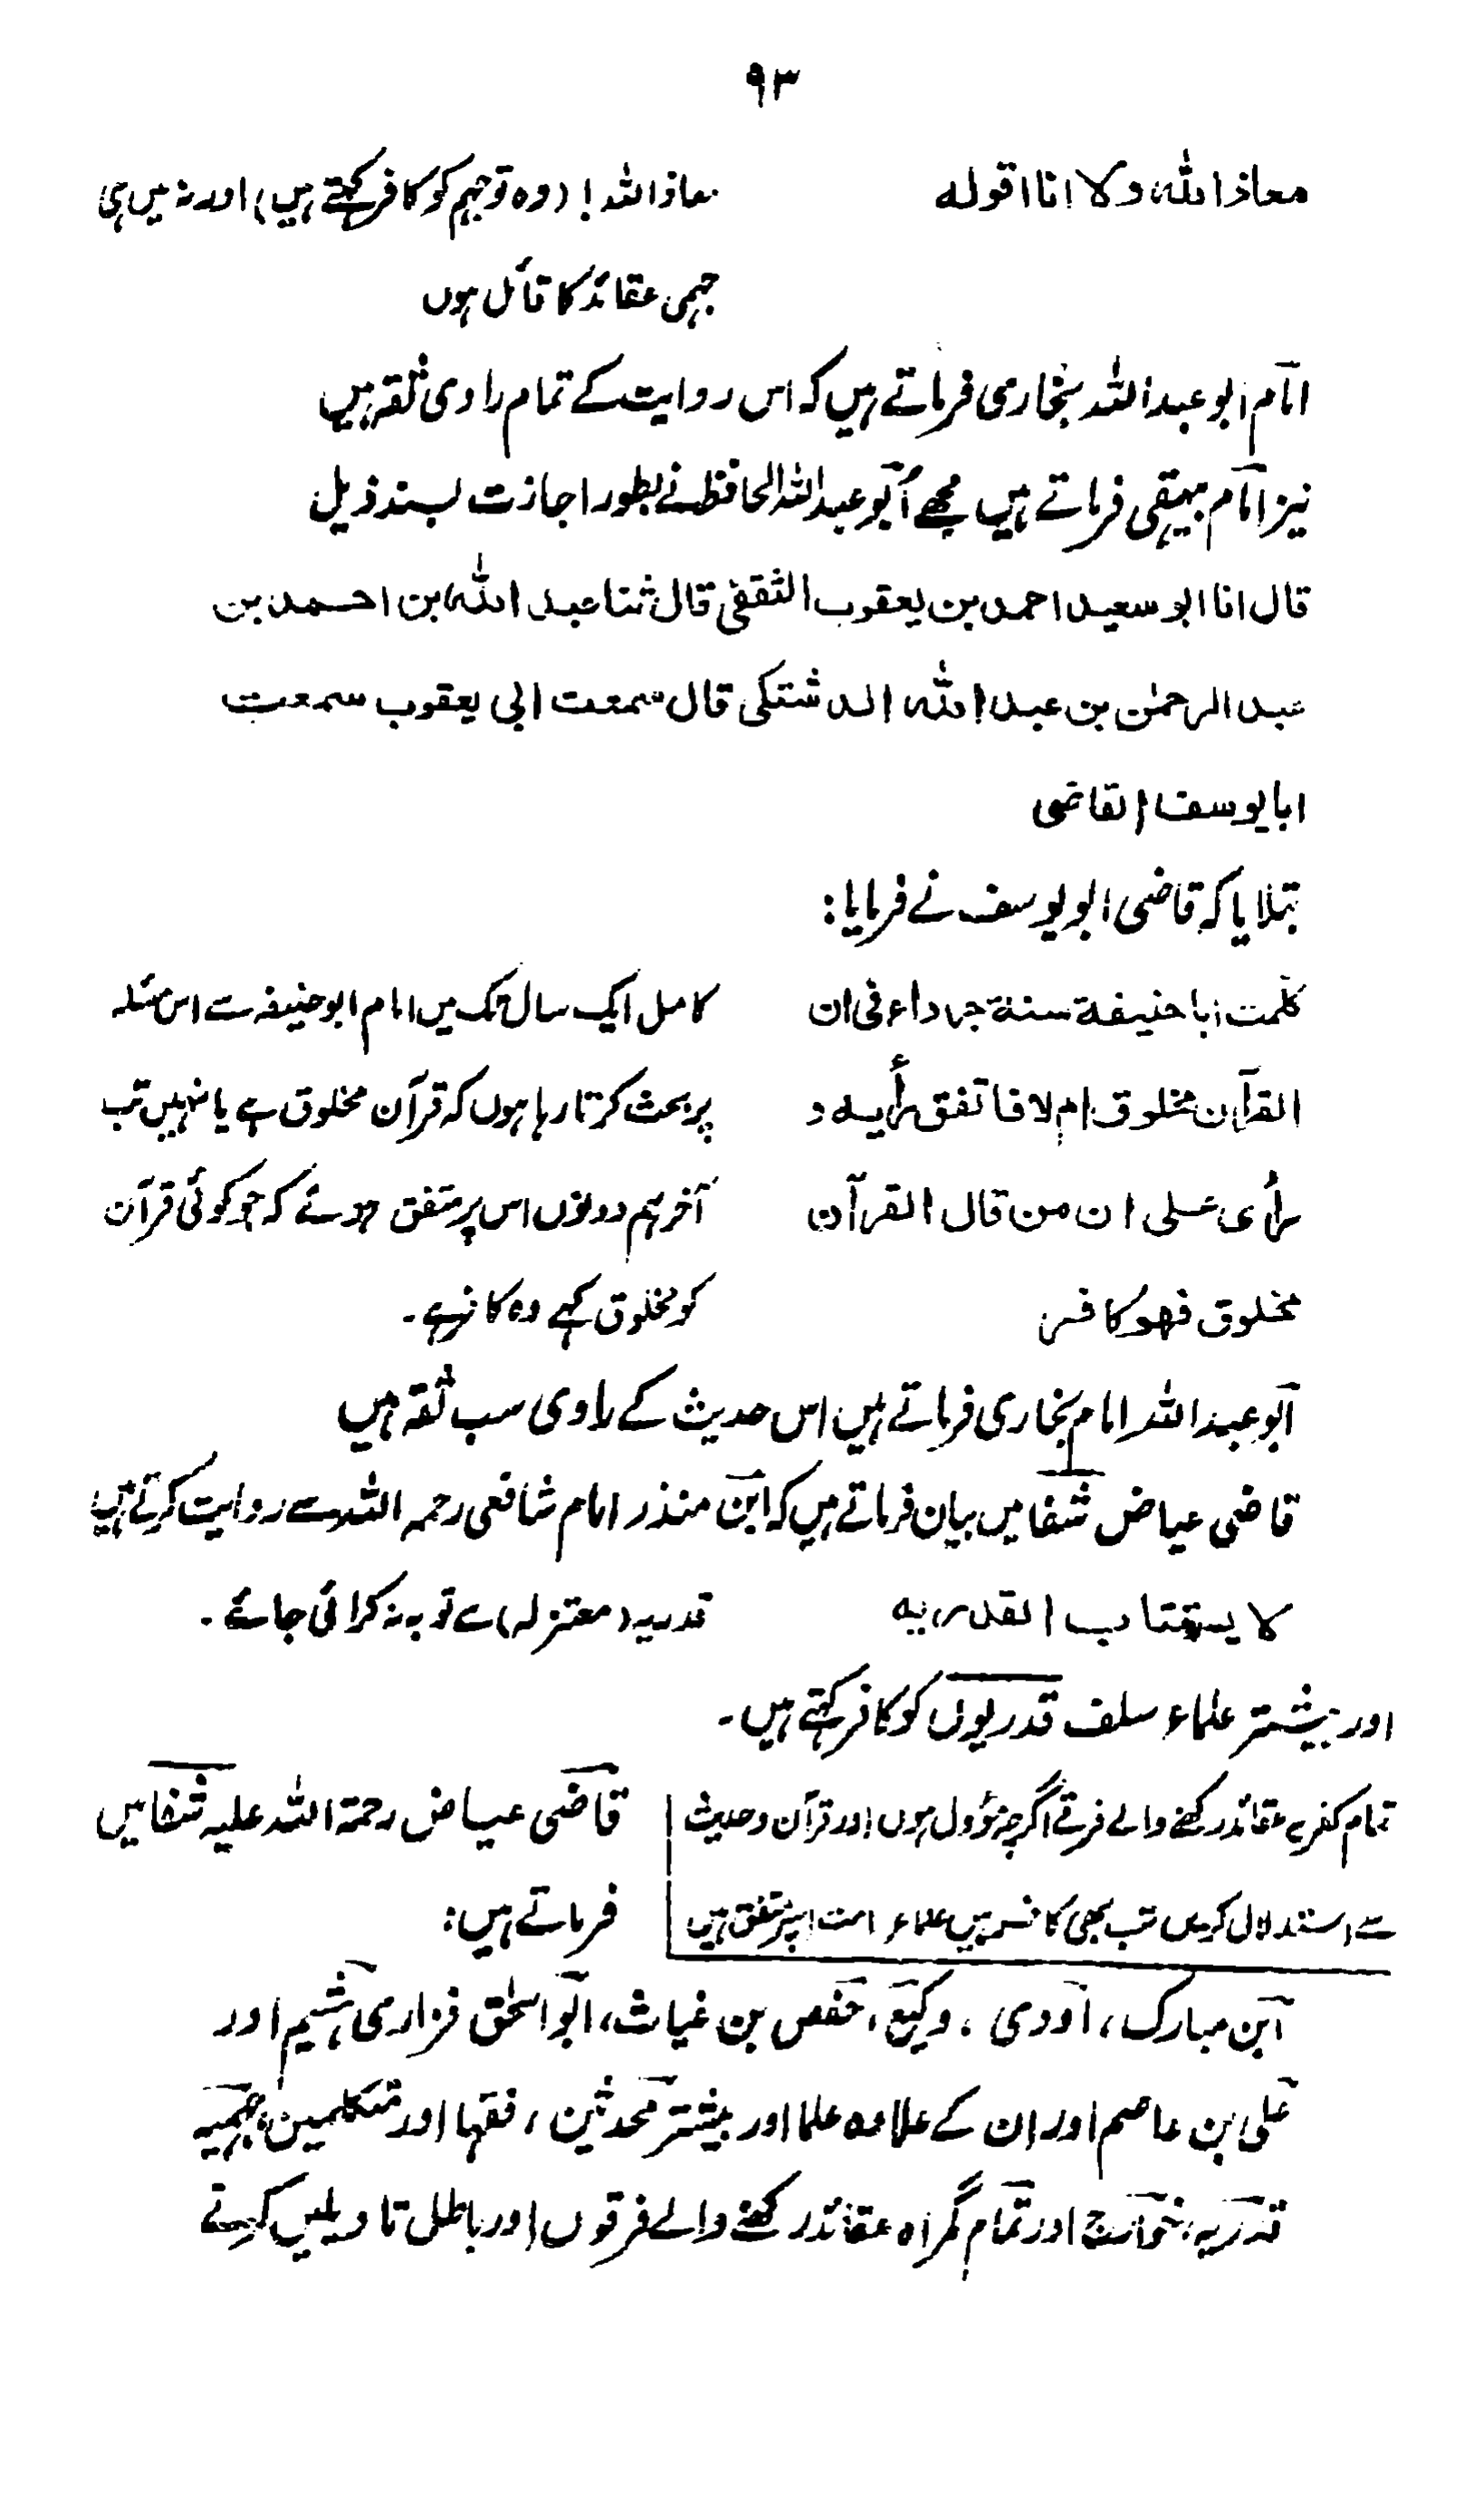 ۹۳
معاذ الله ولا انا اقوله معاذ اللہ! (وہ تو جہم کو کافر کہتے ہیں) اور نہ میں ہی
جہمی عقائد کا قائل ہوں
امام ابو عبداللہ بخاری فرماتے ہیں کہ اس روایت کے تمام راوی ثقہ ہیں
نیز امام بیہقی فرماتے ہیں مجھے ابو عبداللہ الحافظ نے بطور اجازت بسند ذیل
قال انا ابو سعيد احمد بن يعقوب الثقفى قال ثنا عبد الله بن احمد بن
عبد الرحمن بن عبد الله الدشتكى قال سمعت ابي يعقوب سمعت
ابا يوسف القاضى
بتلایا کہ قاضی ابو یوسف نے فرمایا:
كلمت ابا حنيفة سنة جرداء فى ان کامل ایک سال تک میں امام ابو حنیفہ سے اس مسئلہ
القرآن مخلوق ام لا فاتفق رأيه و پر بحث کرتا رہا ہوں کہ قرآن مخلوق ہے یا نہیں تب
رأى على ان من قال القرآن آخر ہم دونوں اس پر متفق ہوئے کہ جو کوئی قرآن
مخلوق فهو كافر کو مخلوق کہے وہ کافر ہے۔
ابو عبداللہ امام بخاری فرماتے ہیں اس حدیث کے راوی سب ثقہ ہیں
قاضی عیاض شفا میں بیان فرماتے ہیں کہ ابن منذر امام شافعی رحمہ اللہ سے روایت کرتے ہیں:
لا يستتاب القدريه قدریہ (معتزلہ) سے توبہ نہ کرائی جائے۔
اور بیشتر علماء سلف قدریوں کو کافر کہتے ہیں۔
تمام کفریہ عقائد رکھنے والے فرقے اگرچہ مؤول ہوں اور قرآن وحدیث
سے استدلال کریں تب بھی کافر ہیں علماء امت اسپر متفق ہیں
قاضی عیاض رحمۃ اللہ علیہ شفا میں
فرماتے ہیں:
ابن مبارک، اودی، وکیع، حفص بن غیاث، ابو اسحٰق فزاری، ہشیم اور
علی ابن عاصم اور ان کے علاوہ علما اور بیشتر محدثین، فقہا اور متکلمین، جہمیہ
قدریہ، خوارج اور تمام گمراہ عقائد رکھنے والے فرقوں اور باطل تاویلیں کرنے